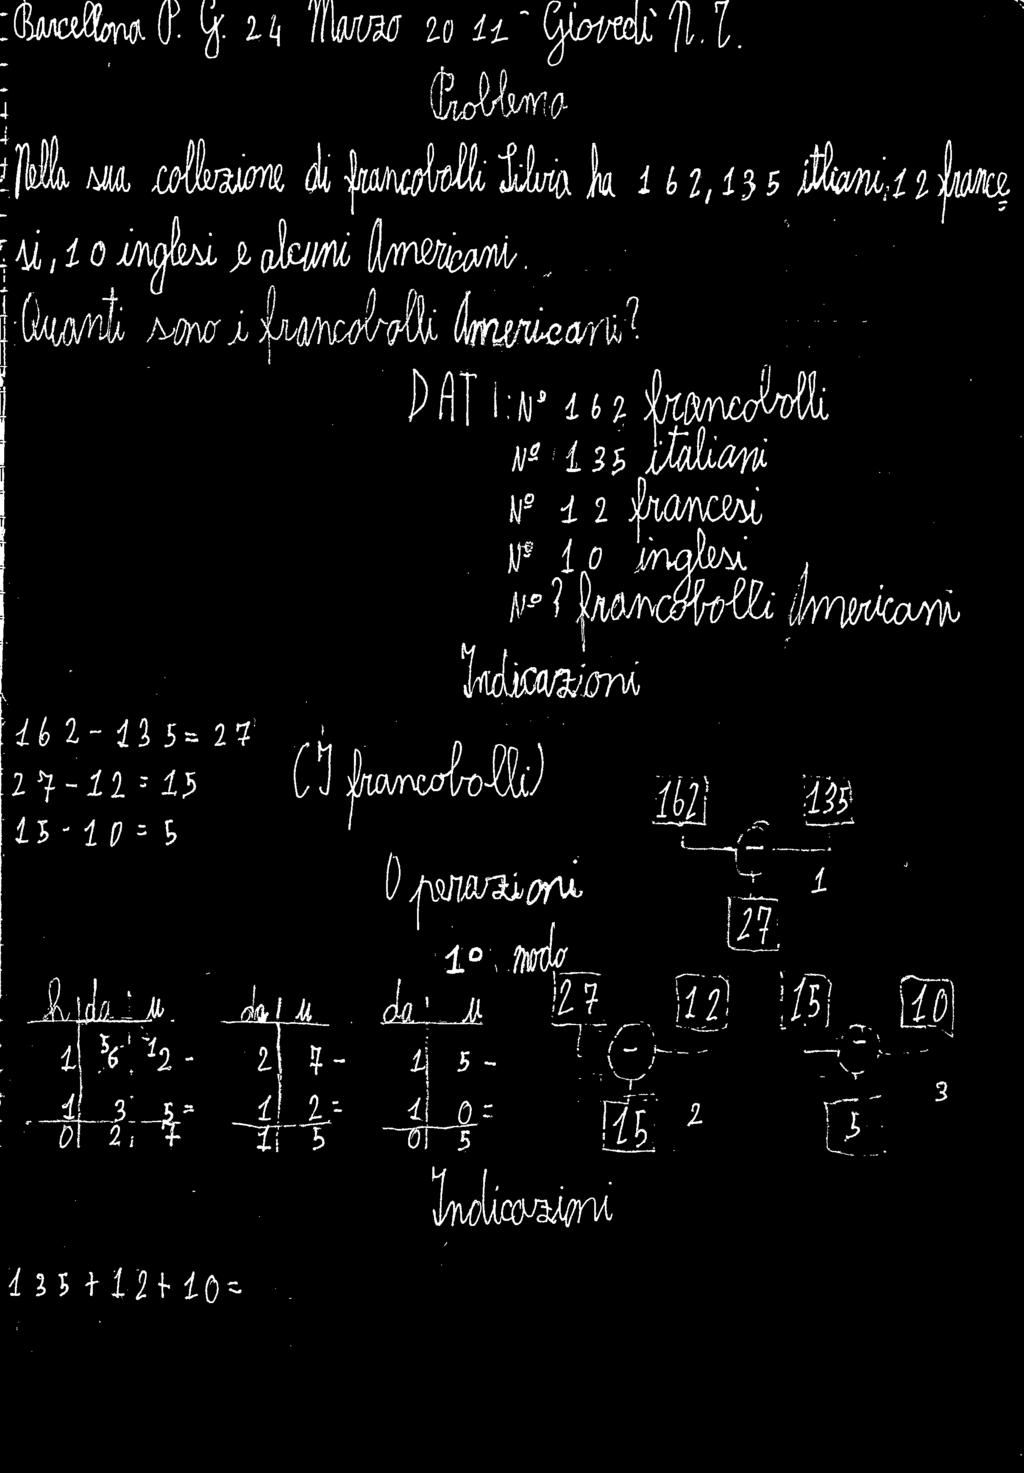 Barcellona P. G. 24 Marzo 2011 - Giovedì N. 7.
Problema
Nella sua collezione di francobolli Silvia ha 162, 135 itliani, 12 france
si, 10 inglesi e alcuni Americani.
Quanti sono i francobolli Americani?
DATI: N° 162 francobolli
N° 135 italiani
N° 12 francesi
N° 10 inglesi
N° ? francobolli Americani
Indicazioni
162 - 135 = 27
27 - 12 = 15
15 - 10 = 5
(I francobolli)
162 135
- 1
27
Operazioni
1° modo
h da u da u da u
1 5 6 12 - 2 7 - 1 5 -
1 3 5 = 1 2 = 1 0 =
0 2 7 1 5 0 5
27 12 15 10
- -
15 2 5 3
Indicazioni
135 + 12 + 10 =